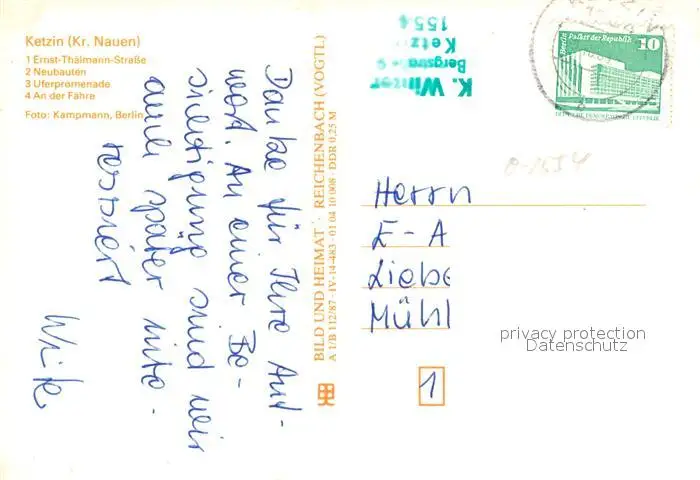 Ketzin (Kr. Nauen)
1 Ernst-Thälmann-Straße
2 Neubauten
3 Uferpromenade
4 An der Fähre
Foto: Kampmann, Berlin
Danke für Ihre Ant-
wort. An einer Be-
sichtigung sind wir
auch später inte-
ressiert
BILD UND HEIMAT · REICHENBACH (VOGTL)
A 1/B 112/87 · IV-14-483 · 01 04 10 008 · DDR 0,25 M
K. Winter
Bergstraße 9
Ketzin
1554
Berlin Palast der Republik
10
DEUTSCHE DEMOKRATISCHE REPUBLIK
O-1554
Herrn
E-A
Liebe
Mühl
privacy protection
Datenschutz
1